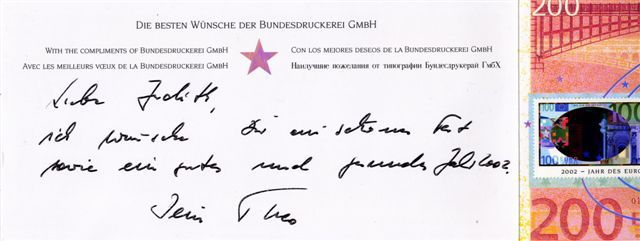 DIE BESTEN WÜNSCHE DER BUNDESDRUCKEREI GMBH
WITH THE COMPLIMENTS OF BUNDESDRUCKEREI GMBH
CON LOS MEJORES DESEOS DE LA BUNDESDRUCKEREI GMBH
AVEC LES MEILLEURS VŒUX DE LA BUNDESDRUCKEREI GMBH
Наилучшие пожелания от типографии Бундесдрукерай ГмбХ
Liebe Judith,
ich wünsche Dir ein schönes Fest
sowie ein gutes und gesundes Jahr 2002.
Dein Theo
200
100
100
2002 – JAHR DES EURO
200